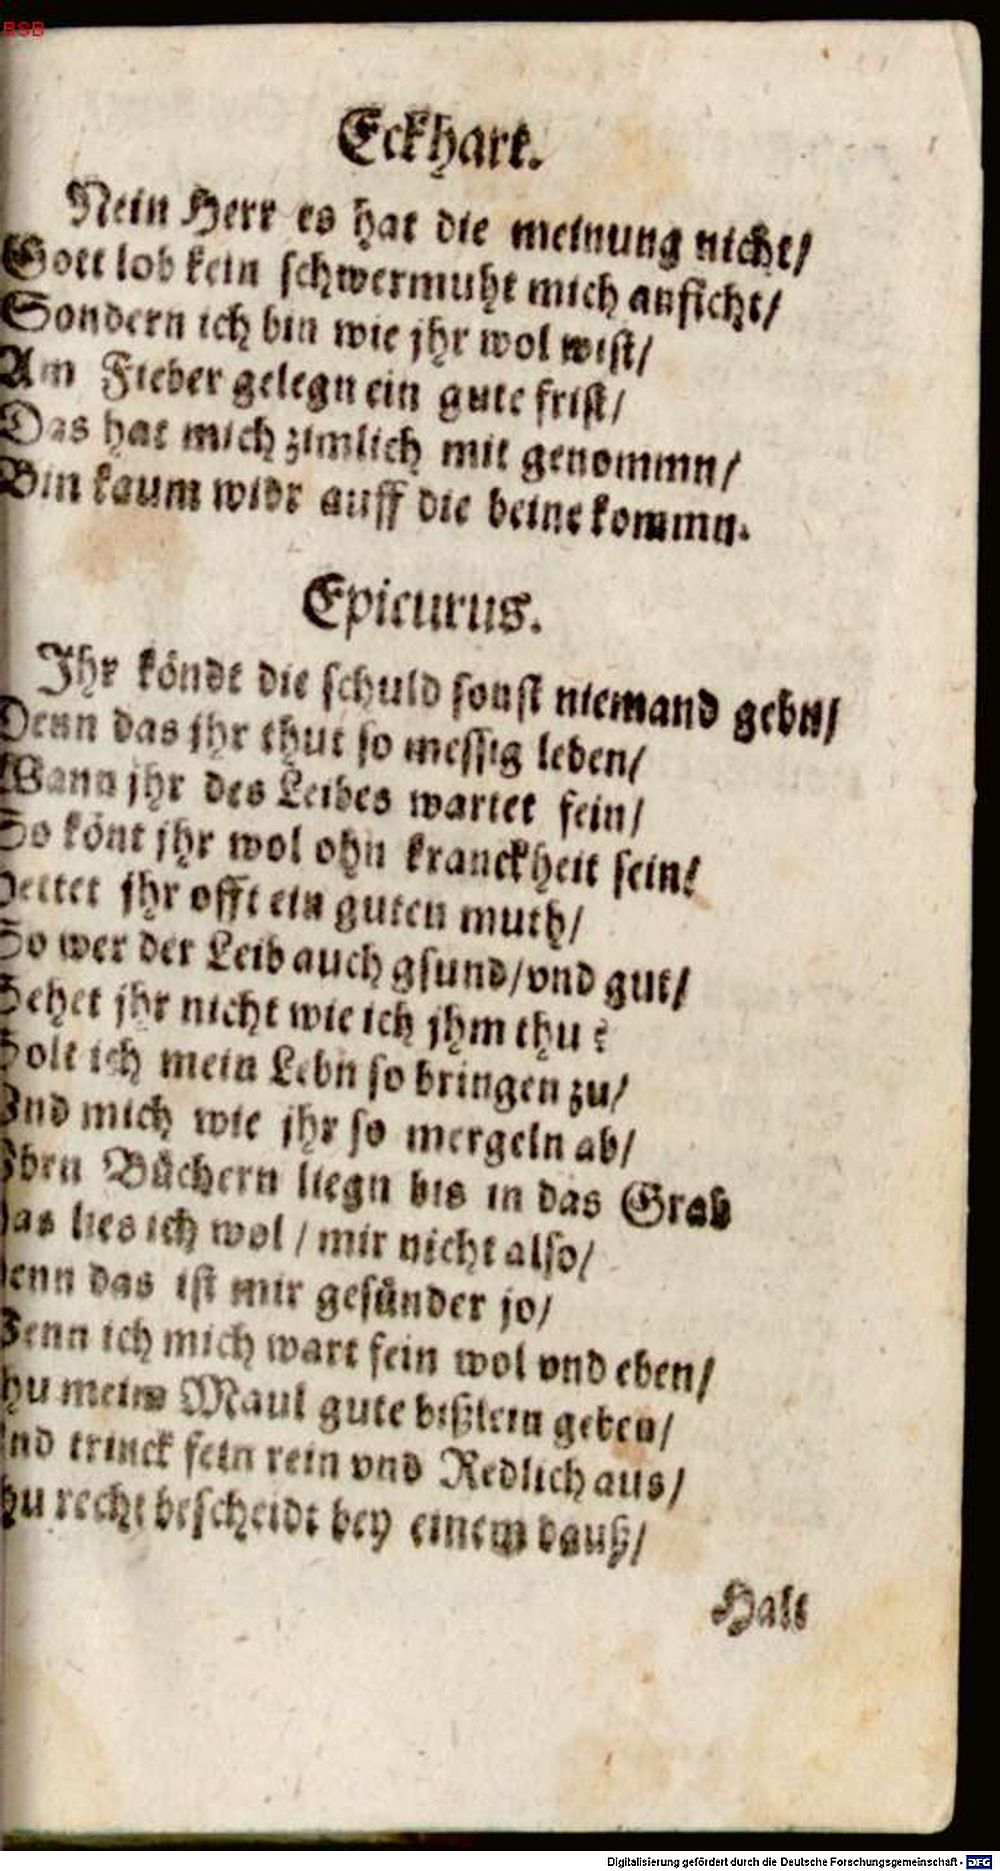 BSB
Eckhart.
Nein Herr es hat die meinung nicht/
Gott lob kein schwermuht mich anficht/
Sondern ich bin wie jhr wol wist/
Am Fieber gelegn ein gute frist/
Das hat mich zimlich mit genommn/
Bin kaum widr auff die beine kommn.
Epicurus.
Ihr köndt die schuld sonst niemand gebn/
Denn das jhr thut so messig leben/
Wann jhr des Leibes wartet fein/
So könt jhr wol ohn kranckheit sein!
Hettet jhr offt ein guten muth/
So wer der Leib auch gsund/vnd gut/
Sehet jhr nicht wie ich jhm thu?
Solt ich mein Lebn so bringen zu/
Vnd mich wie jhr so mergeln ab/
Vbrn Büchern liegn bis in das Grab
Das lies ich wol / mir nicht also/
Denn das ist mir gesünder jo/
Wenn ich mich wart fein wol vnd eben/
Thu meim Maul gute bißlein geben/
Vnd trinck fein rein vnd Redlich aus/
Thu recht bescheidt bey einem dauß/
Halt
Digitalisierung gefördert durch die Deutsche Forschungsgemeinschaft - DFG